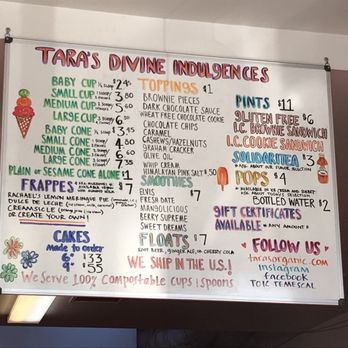 TARA'S DIVINE INDULGENCES
BABY CUP $2.45
SMALL CUP
MEDIUM CUP 5.60
LARGE CUP
BABY CONE $3.45
SMALL CONE
MEDIUM CONE
LARGE CONE 7.35
PLAIN OR SESAME CONE ALONE $1
FRAPPES $7
RACHAEL'S LEMON MERINGUE PIE
DULCE DE LECHE
CREAMSICLE
OR CREATE YOUR OWN!
CAKES
MADE TO ORDER
6" $33
9" $55
TOPPINGS $1
BROWNIE PIECES
DARK CHOCOLATE SAUCE
WHEAT FREE CHOCOLATE COOKIE
CHOCOLATE CHIPS
CARAMEL
CASHEWS/HAZELNUTS
GRAHAM CRACKER
OLIVE OIL
WHIP CREAM
HIMALAYAN PINK SALT $.50
SMOOTHIES $7
ELVIS
FRESH DATE
MANGOLICIOUS
BERRY SUPREME
SWEET DREAMS
FLOATS $7
ROOT BEER, GINGER ALE, OR CHERRY COLA
WE SHIP IN THE U.S.!
PINTS $11
GLUTEN FREE $6
I.C. BROWNIE SANDWICH
I.C. COOKIE SANDWICH
SOLIDARITEA $3
POPS $4
BOTTLED WATER $2
GIFT CERTIFICATES
AVAILABLE ANY AMOUNT
FOLLOW US
tarasorganic.com
instagram
facebook
TOIC TEMESCAL
We Serve 100% Compostable cups & spoons